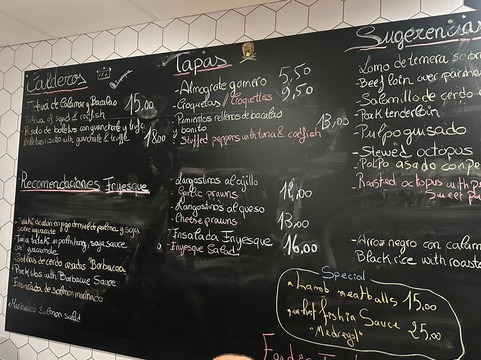 Calderos
Fideuá de Calamar y Bacalao 15,00
Fideua of squid & codfish
Risotto de boletus con guanchete y trufa 18,00
Boletus risotto with guanchete & truffle
Recomendaciones Fryesque
sobre aguacate
Tuna tataki in palm honey, soja sauce
over avocado
Costillas de cerdo asadas "Barbacoa"
Pork ribs with Barbacue Sauce
Ensalada de salmon marinado
Marinated salmon salad
Tapas
- Almogrote gomero 5,50
- Croquetas / croquettes 9,50
- Pimientos rellenos de bacalao
y bonito 13,00
Stuffed peppers with tuna & codfish
- Langostinos al ajillo
Garlic prawns
- Langostinos al queso
Cheese prawns 13,00
- Ensalada Fryesque
- Fryesque Salad 16,00
Sugerencias
- Lomo de ternera sobre
- Beef loin over
- Solomillo de cerdo
- Pork tenderloin
- Pulpo guisado
- Stewed octopus
- Pulpo asado con
- Roasted octopus with
- Arroz negro con calam
Black rice with roaste
Special
Lamb meatballs 15,00
fish in Sauce 25,00